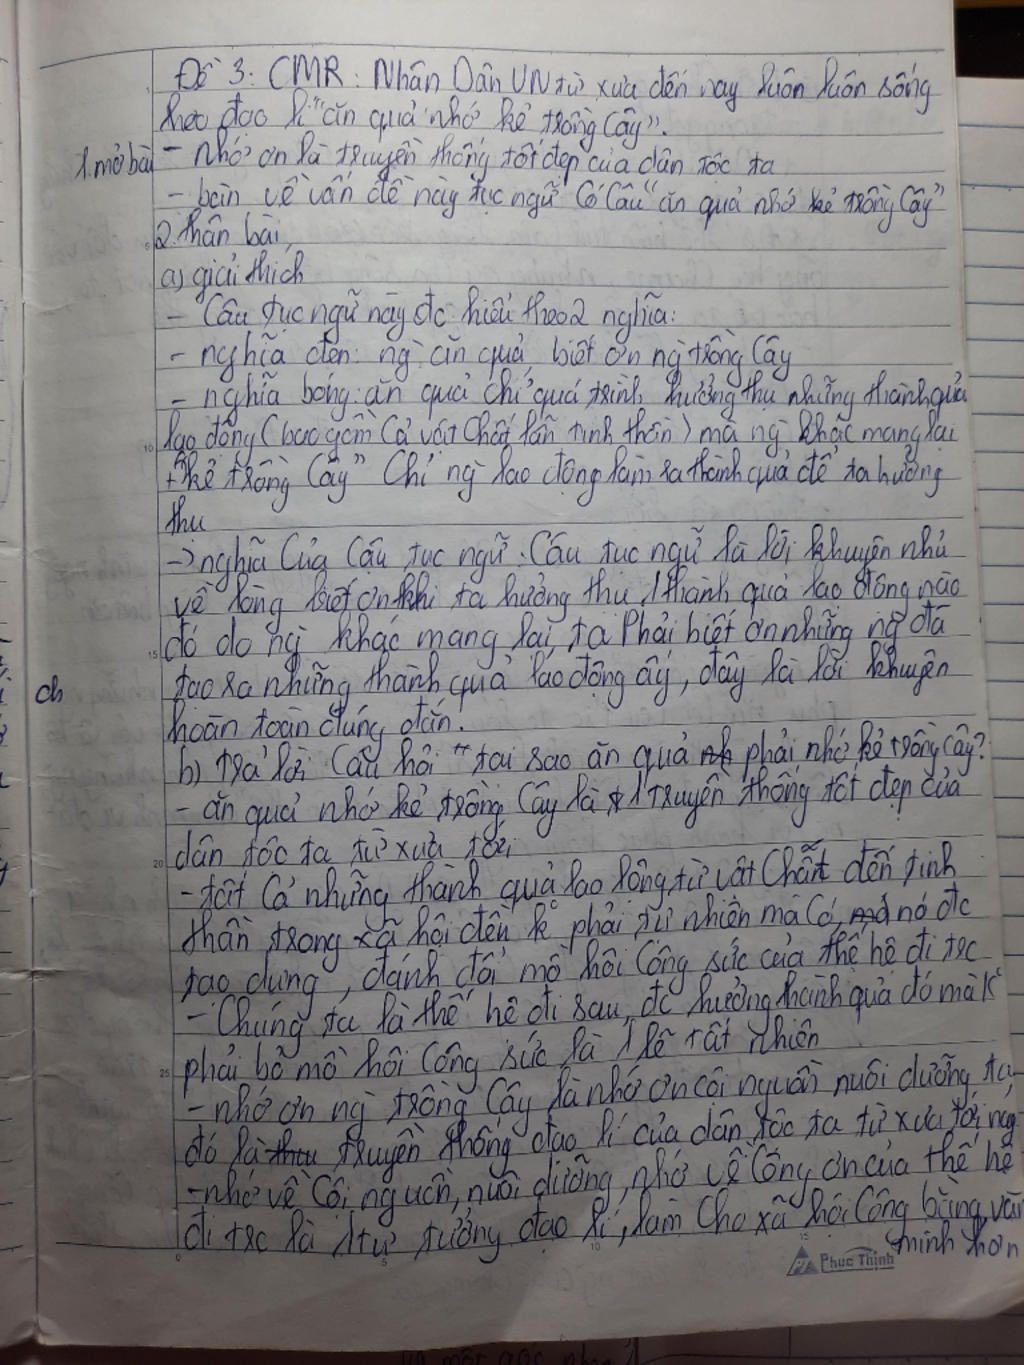 Đề 3: CMR: Nhân Dân VN từ xưa đến nay luôn luôn sống
theo đạo lí "ăn quả nhớ kẻ trồng Cây".
1. mở bài - nhớ ơn là truyền thống tốt đẹp của dân tộc ta
- bàn về vấn đề này tục ngữ Có Câu "ăn quả nhớ kẻ trồng Cây"
2. thân bài,
a) giải thích
- Câu tục ngữ này đc hiểu theo 2 nghĩa:
- nghĩa đen: ng` ăn quả biết ơn ng` trồng Cây
- nghĩa bóng: ăn quả chỉ quá trình hưởng thụ những thành quả
lao động (bao gồm Cả vật Chất lẫn tinh thần) mà ng` khác mang lại
+ "kẻ trồng Cây" Chỉ ng` lao động làm ra thành quả để ta hưởng
thụ
-> nghĩa Của Câu tục ngữ: Câu tục ngữ là lời khuyên nhủ
về lòng biết ơn khi ta hưởng thụ 1 thành quả lao động nào
đó do ng` khác mang lại, ta Phải biết ơn những ng` đã
tạo ra những thành quả lao động ấy, đây là lời khuyên
ch
hoàn toàn đúng đắn.
b) trả lời Câu hỏi "tại sao ăn quả phải nhớ kẻ trồng Cây?
- ăn quả nhớ kẻ trồng Cây là 1 truyền thống tốt đẹp của
dân tộc ta từ xưa tới
- tất Cả những thành quả lao lông, từ vật Chất đến tinh
thần trong xã hội đền k° phải tự nhiên mà Có, nó đc
tạo dựng, đánh đổi mồ hôi Công sức của thế hệ đi trc
- Chúng ta là thế hệ đi sau, đc hưởng thành quả đó mà k°
phải bỏ mồ hôi Công sức là 1 lẽ tất nhiên
- nhớ ơn ng` trồng Cây là nhớ ơn cội nguồn nuôi dưỡng ta,
đó là truyền thống đạo lí của dân tộc ta từ xưa tới
- nhớ về Cội nguồn, nuôi dưỡng, nhớ về Công ơn của thế hệ
đi trc là 1 tư tưởng đạo lí, làm Cho xã hội Công bằng, văn
minh hơn
Phuc Thinh